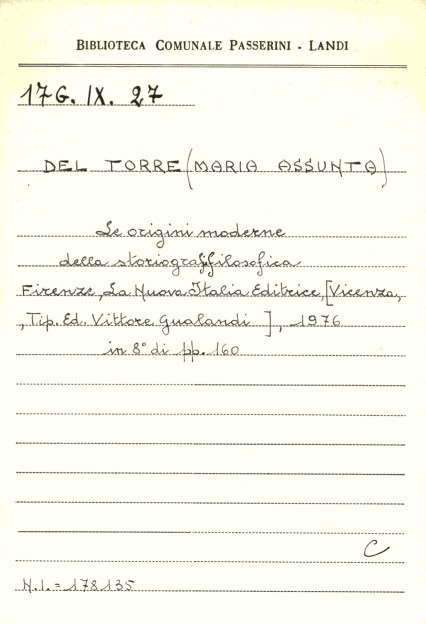 BIBLIOTECA COMUNALE PASSERINI - LANDI
17G. IX. 27
DEL TORRE (MARIA ASSUNTA)
Le origini moderne
della storiografifilosofica
Firenze, La Nuova Italia Editrice, [Vicenza,
, Tip. Ed. Vittore Gualandi ], 1976
in 8° di pp. 160
C
N.I. = 178135